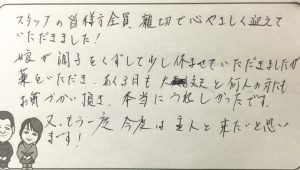 スタッフの皆様方全員、親切で心やさしく迎えて
いただきました！
娘が調子をくずして少し休ませていただきましたが
薬をいただき、あくる日も大丈夫と何人の方にも
お気づかい頂き、本当にうれしかったです。
又、もう一度今度は主人と来たいと思い
ます！